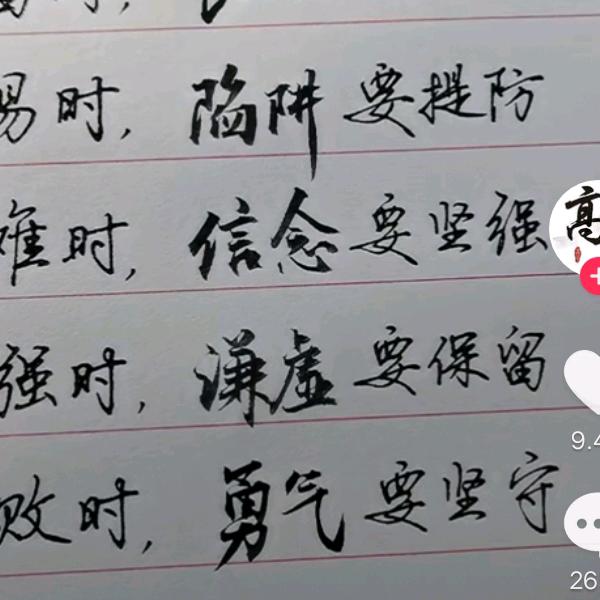 易时，陷阱要提防
难时，信念要坚强
强时，谦虚要保留
败时，勇气要坚守
高
9.4
26